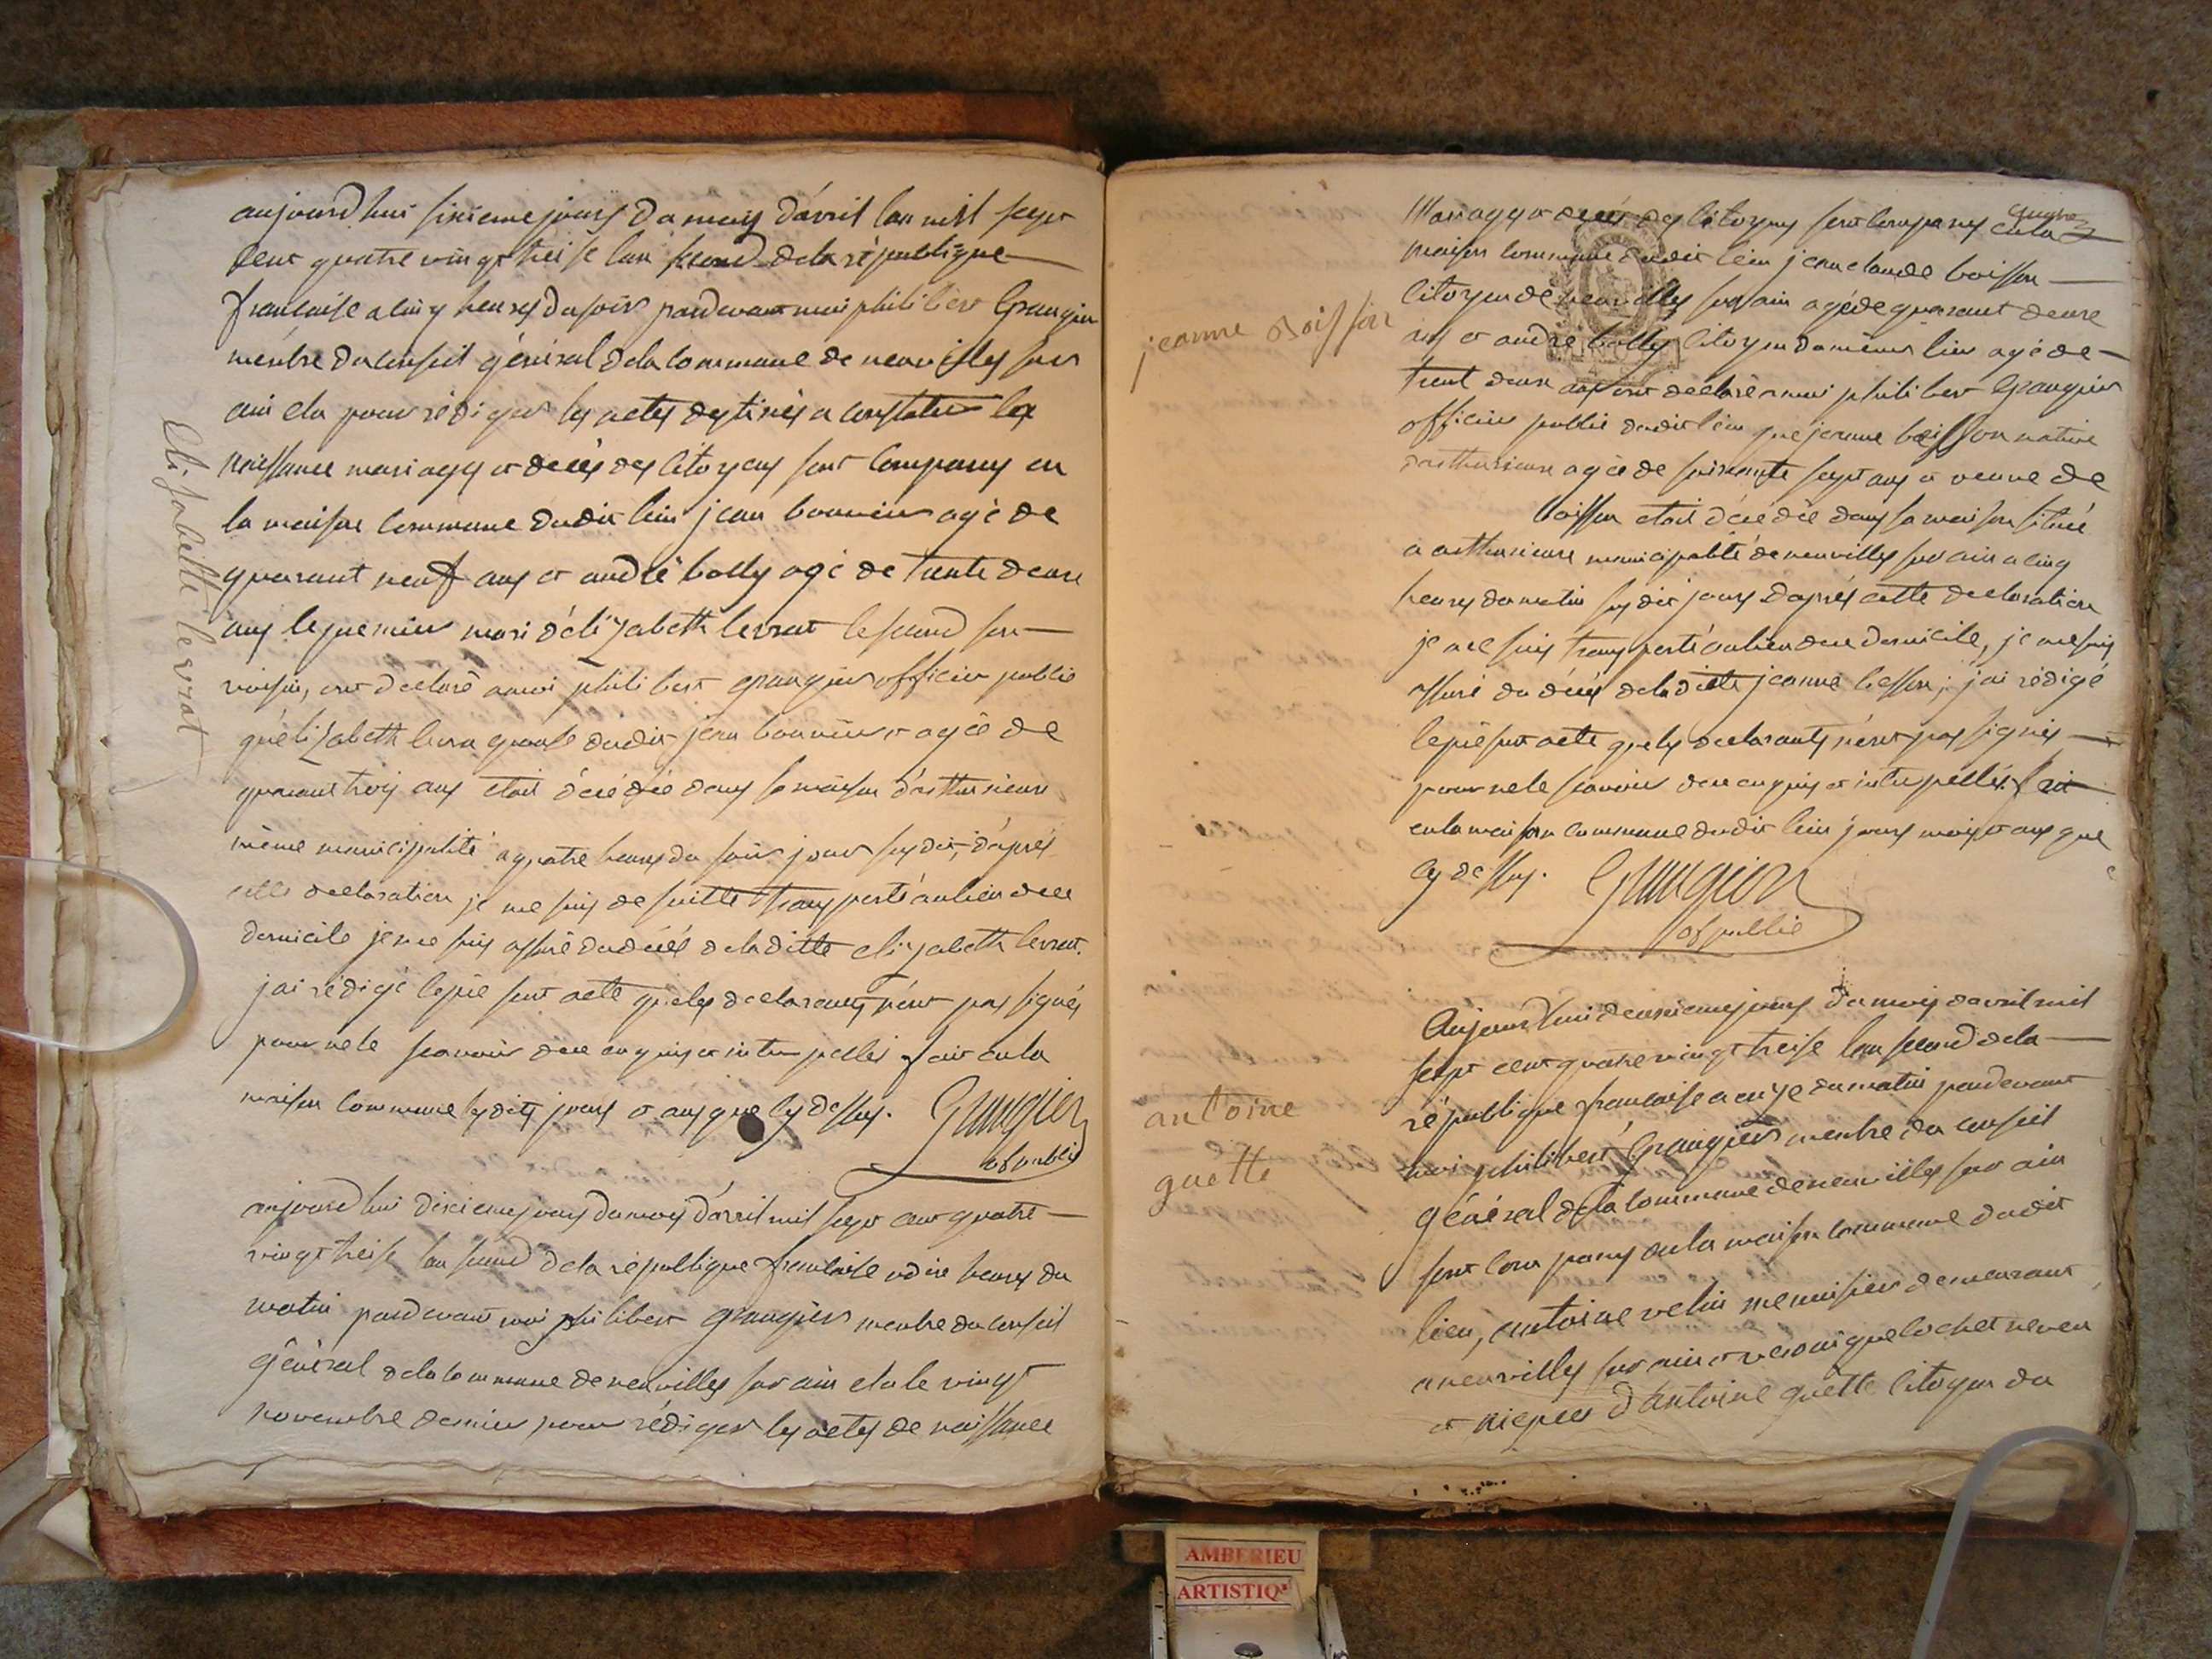 aujourdhui sixieme jours du mois d'avril lan mil sept
cent quatre vingt treise lan second dela république
francaise a cinq heures du soir pardevant moi philibert Grangier
membre du conseil général dela commune de neuvilles sur
ain elu pour rédiger les actes destinés a constater les
naissance mariages et décés des citoyens sont comparus en
la maison commune dudit lieu jean bouvier agé de
quarant neuf ans et andré bolly agé de trente deux
ans le premier mari d'élizabeth levrat le second son
voisin, ont declaré a moi philibert grangier officier public
qu'élizabeth levra epouse dudit jean bouvier et agée de
quarant trois ans etoit décédée dans sa maison d'arthurieux
même municipalité a quatre heures du soir jour susdit, d'aprés
cette declaration je me suis de suitte transporté au lieu de ce
domicile je me suis assuré du décés de la ditte elizabeth levrat.
jai rédigé le présent acte que les declarants n'ont pas signés
pour ne le scavoir de ce enquis et interpellés fait en la
maison commune lesdits jours et ans que cy dessus. Grangier
of public
elisabette levrat
aujourdhui dixieme jours du mois d'avril mil sept cent quatre
vingt treise lan second dela république francaise a dix heures du
matin pardevant moi philibert grangier membre du conseil
général dela commune de neuvilles sur ain elu le vingt
novembre dernier pour rédiger les actes de naissance
Mariages et décés des citoyens sont comparus en la
maison commune dudit lieu jean claude boisson
citoyen de neuvilles sur ain agé de quarant deux
ans et andré bolly citoyen du même lieu agé de
trent deux ans ont déclaré a moi philibert Grangier
officier public dudit lieu que jeanne boisson native
d'arthurieux agée de soixante sept ans et veuve de
boisson etoit décédée dans sa maison située
a arthurieux municipalité de neuvilles sur ain a cinq
heures du matin susdit jours d'aprés cette declaration
je me suis transporté au lieu de ce domicile, je me suis
assuré du décés de la ditte jeanne boisson; j'ai rédigé
le présent acte que les declarants n'ont pas signés
pour ne le scavoir de ce enquis et interpellés. fait
en la maison commune dudit lieu jours mois et ans que
cy dessus. Grangier
of public
jeanne Boisson
Aujourdhui deuxieme jours du mois d'avril mil
sept cent quatre vingt treise lan second dela
république francaise a onze du matin pardevant
moi philibert Grangier membre du conseil
général dela commune de neuvilles sur ain
sont comparus en la maison commune dudit
lieu, antoine velin menuisier demeurant
a neuvilles sur ain et veronique cochet neveu
et niepce d'antoine guette citoyen du
antoine
guette
AMBERIEU
ARTISTIQ